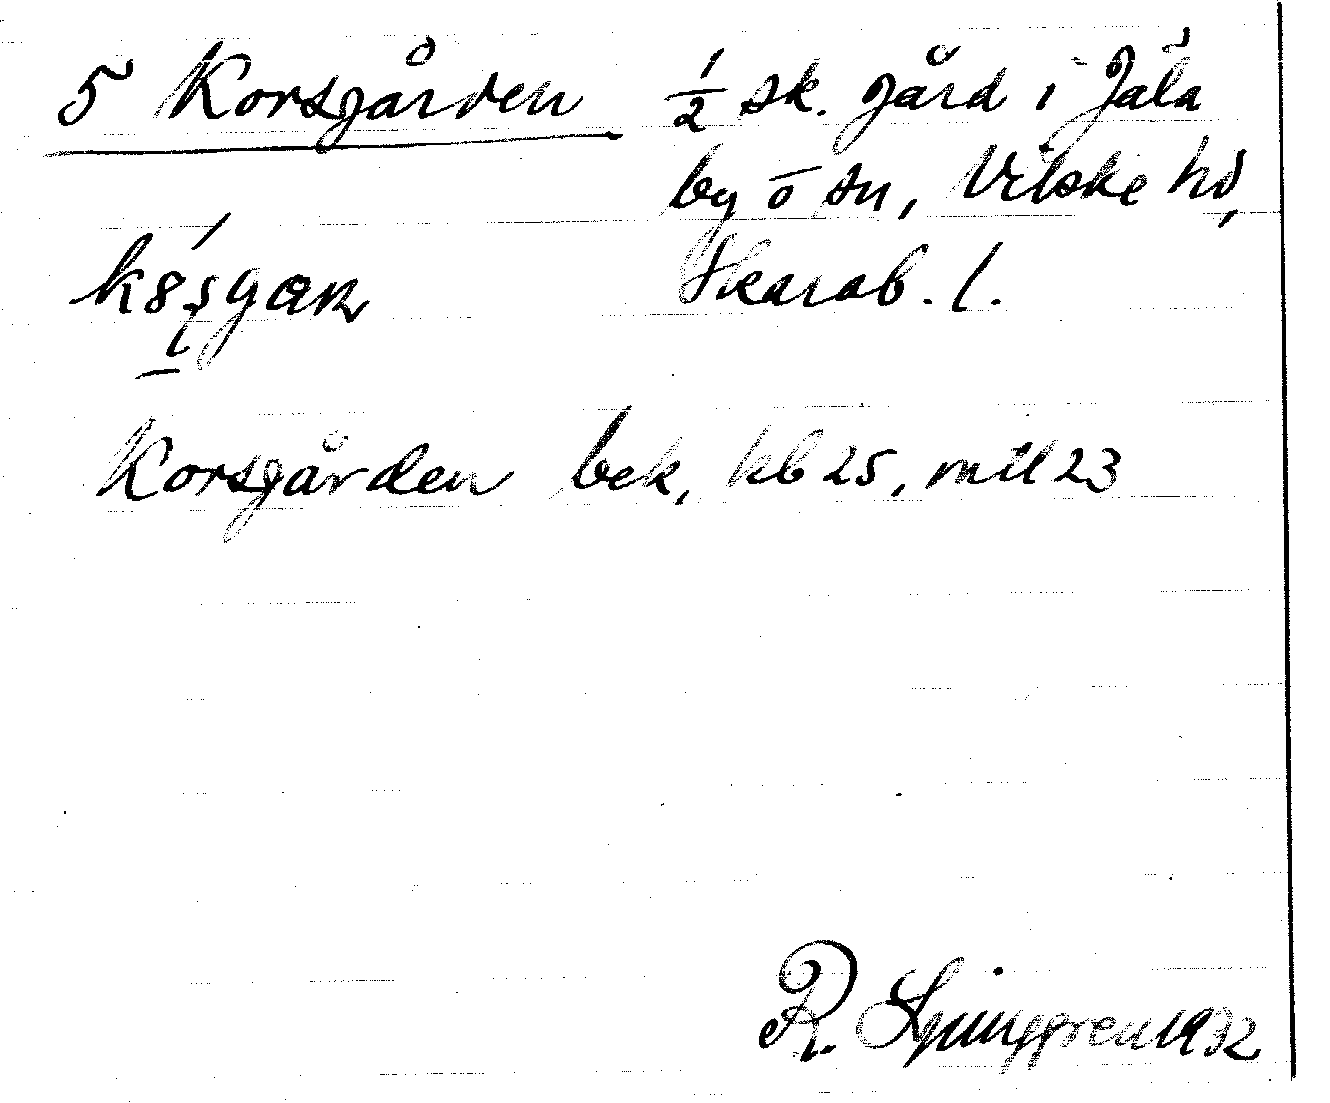 5 Korsgården ½ sk. gård i Jäla
by o sn, Vilske hd,
Skarab. l.
Korsgården bek, kb 25, mtl 23
R. Ljunggren 1932